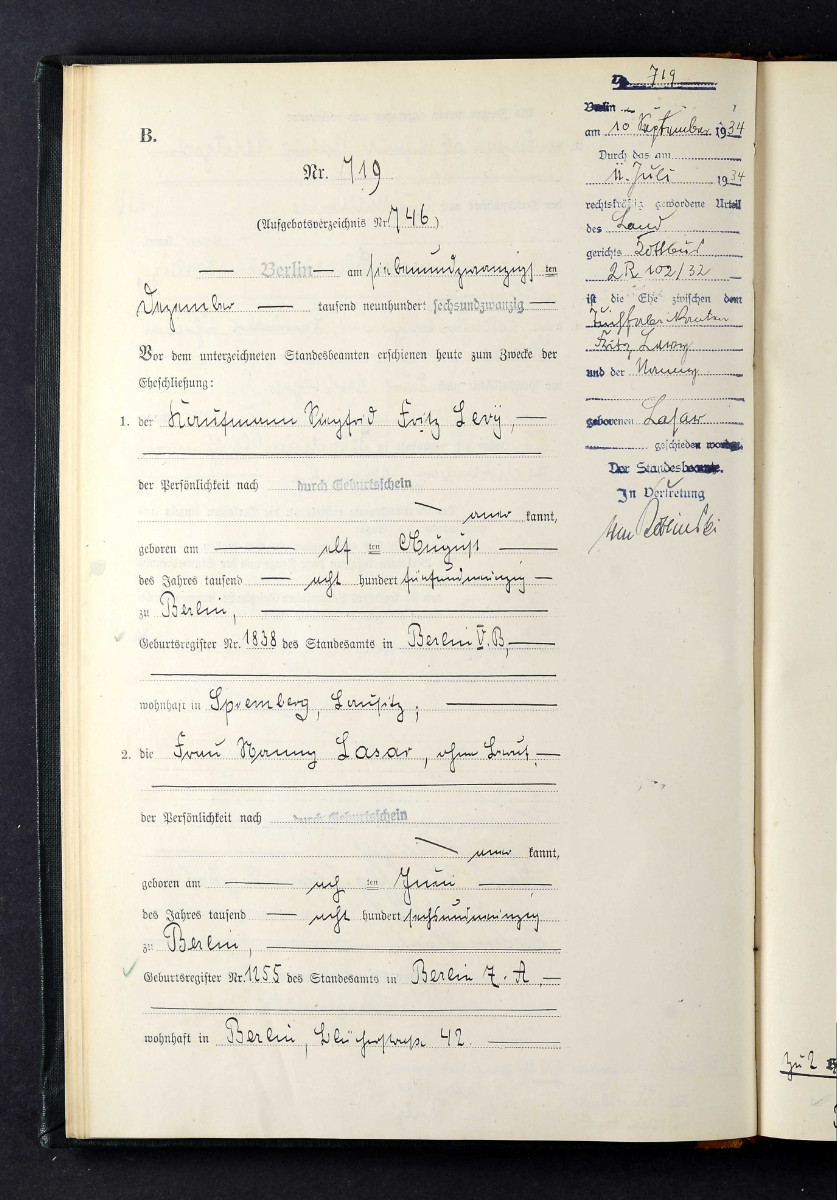 B.
Nr. 719
(Aufgebotsverzeichnis Nr. 746)
Berlin am siebenundzwanzigs ten
Dezember tausend neunhundert sechsundzwanzig
Vor dem unterzeichneten Standesbeamten erschienen heute zum Zwecke der
Eheschließung:
1. der Kaufmann Siegfrid Fritz Levÿ,
der Persönlichkeit nach durch Geburtsschein
aner kannt,
geboren am elf ten August
des Jahres tausend acht hundert fünfundneunzig
zu Berlin,
Geburtsregister Nr. 1838 des Standesamts in Berlin V. B,
wohnhaft in Spremberg, Lausitz;
2. die Frau Nanny Lasar, ohne Beruf,
der Persönlichkeit nach durch Geburtsschein
aner kannt,
geboren am ach ten Juni
des Jahres tausend acht hundert sechsundneunzig
zu Berlin,
Geburtsregister Nr. 1255 des Standesamts in Berlin 7. A,
wohnhaft in Berlin, Blücherstraße 42.
719
Berlin
am 10 September 1934
Durch das am
11. Juli 1934
rechtskräftig gewordene Urteil
des Land
gerichts Kottbus
2 R 102/32
ist die Ehe zwischen dem
Fritz Lewy
und der Nanny
geborenen Lasar
geschieden worden.
Der Standesbeamte.
In Vertretung
zu 2